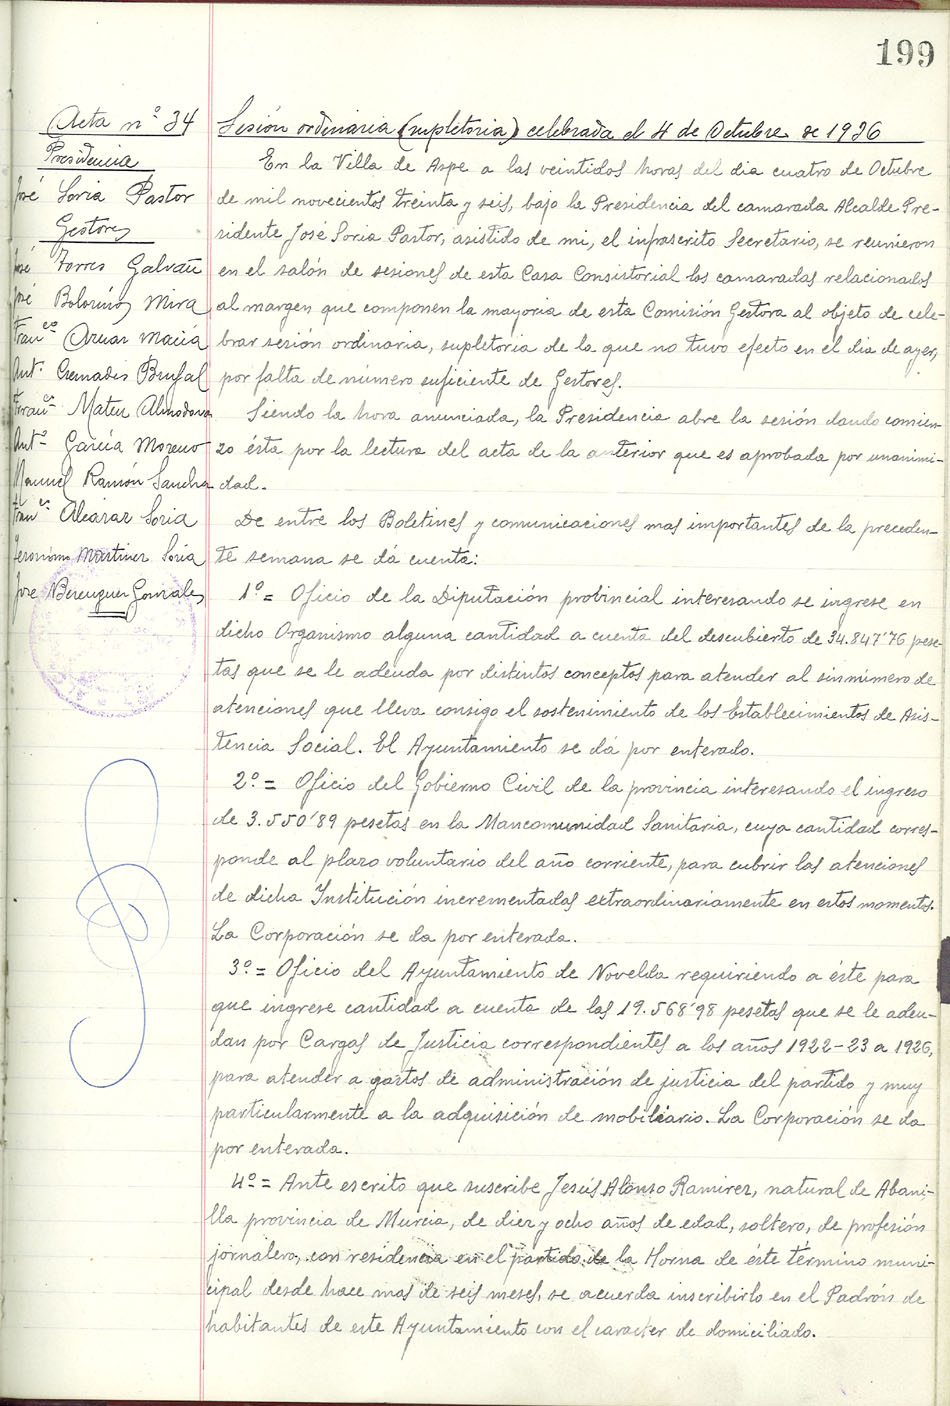 199
Acta nº 34
Presidencia
José Soria Pastor
Gestores
José Torres Galvañ
José Boloriños Mira
Franco Aznar Macia
Ant. Cremades Brufal
Franco Mateu Almodovar
Antº García Moreno
Manuel Ramón Sancha
Franco Alcaraz Soria
Jeronimo Martinez Soria
Jose Berenguer Gonzales
Sesión ordinaria (supletoria) celebrada el 4 de Octubre de 1936
En la Villa de Aspe a las veintidos horas del dia cuatro de Octubre
de mil novecientos treinta y seis, bajo la Presidencia del camarada Alcalde Pre-
sidente José Soria Pastor, asistido de mi, el infrascrito Secretario, se reunieron
en el salón de sesiones de esta Casa Consistorial los camaradas relacionados
al margen que componen la mayoria de esta Comisión Gestora al objeto de cele-
brar sesión ordinaria, supletoria de la que no tuvo efecto en el dia de ayer,
por falta de número suficiente de Gestores.
Siendo la hora anunciada, la Presidencia abre la sesión dando comien-
zo ésta por la lectura del acta de la anterior que es aprobada por unanimi-
dad.
De entre los Boletines y comunicaciones mas importantes de la preceden-
te semana se dá cuenta:
1º = Oficio de la Diputación probincial interesando se ingrese en
dicho Organismo alguna cantidad a cuenta del descubierto de 34.847'76 pese-
tas que se le adeuda por distintos conceptos para atender al sinnúmero de
atenciones que lleva consigo el sostenimiento de los Establecimientos de Asis-
tencia Social. El Ayuntamiento se dá por enterado.
2º = Oficio del Gobierno Civil de la provincia interesando el ingreso
de 3.550'89 pesetas en la Mancomunidad Sanitaria, cuya cantidad corres-
ponde al plazo voluntario del año corriente, para cubrir las atenciones
de dicha Institución incrementadas extraordinariamente en estos momentos.
La Corporación se da por enterada.
3º = Oficio del Ayuntamiento de Novelda requiriendo a éste para
que ingrese cantidad a cuenta de las 19.568'98 pesetas que se le adeu-
dan por Cargas de Justicia correspondientes a los años 1922-23 a 1926,
para atender a gastos de administración de justicia del partido y muy
particularmente a la adquisición de mobiliario. La Corporación se da
por enterada.
4º = Ante escrito que suscribe Jesús Alonso Ramirez, natural de Abani-
lla provincia de Murcia, de diez y ocho años de edad, soltero, de profesión
jornalero, con residencia en el partido de la Horna de éste término muni-
cipal desde hace mas de seis meses, se acuerda inscribirlo en el Padrón de
habitantes de este Ayuntamiento con el caracter de domiciliado.